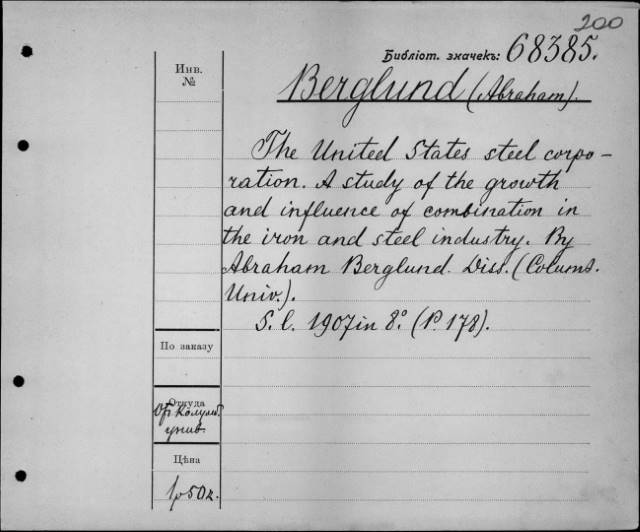 200
Библіот. значекъ: 68385.
Инв.
№
Berglund (Abraham).
The United States steel corpo-
ration. A study of the growth
and influence of combination in
the iron and steel industry. By
Abraham Berglund. Diss. (Columb.
Univ.).
S. l. 1907 in 8° (P. 178).
По заказу
Откуда
От Колумб
унив.
Цѣна
1р 50к.